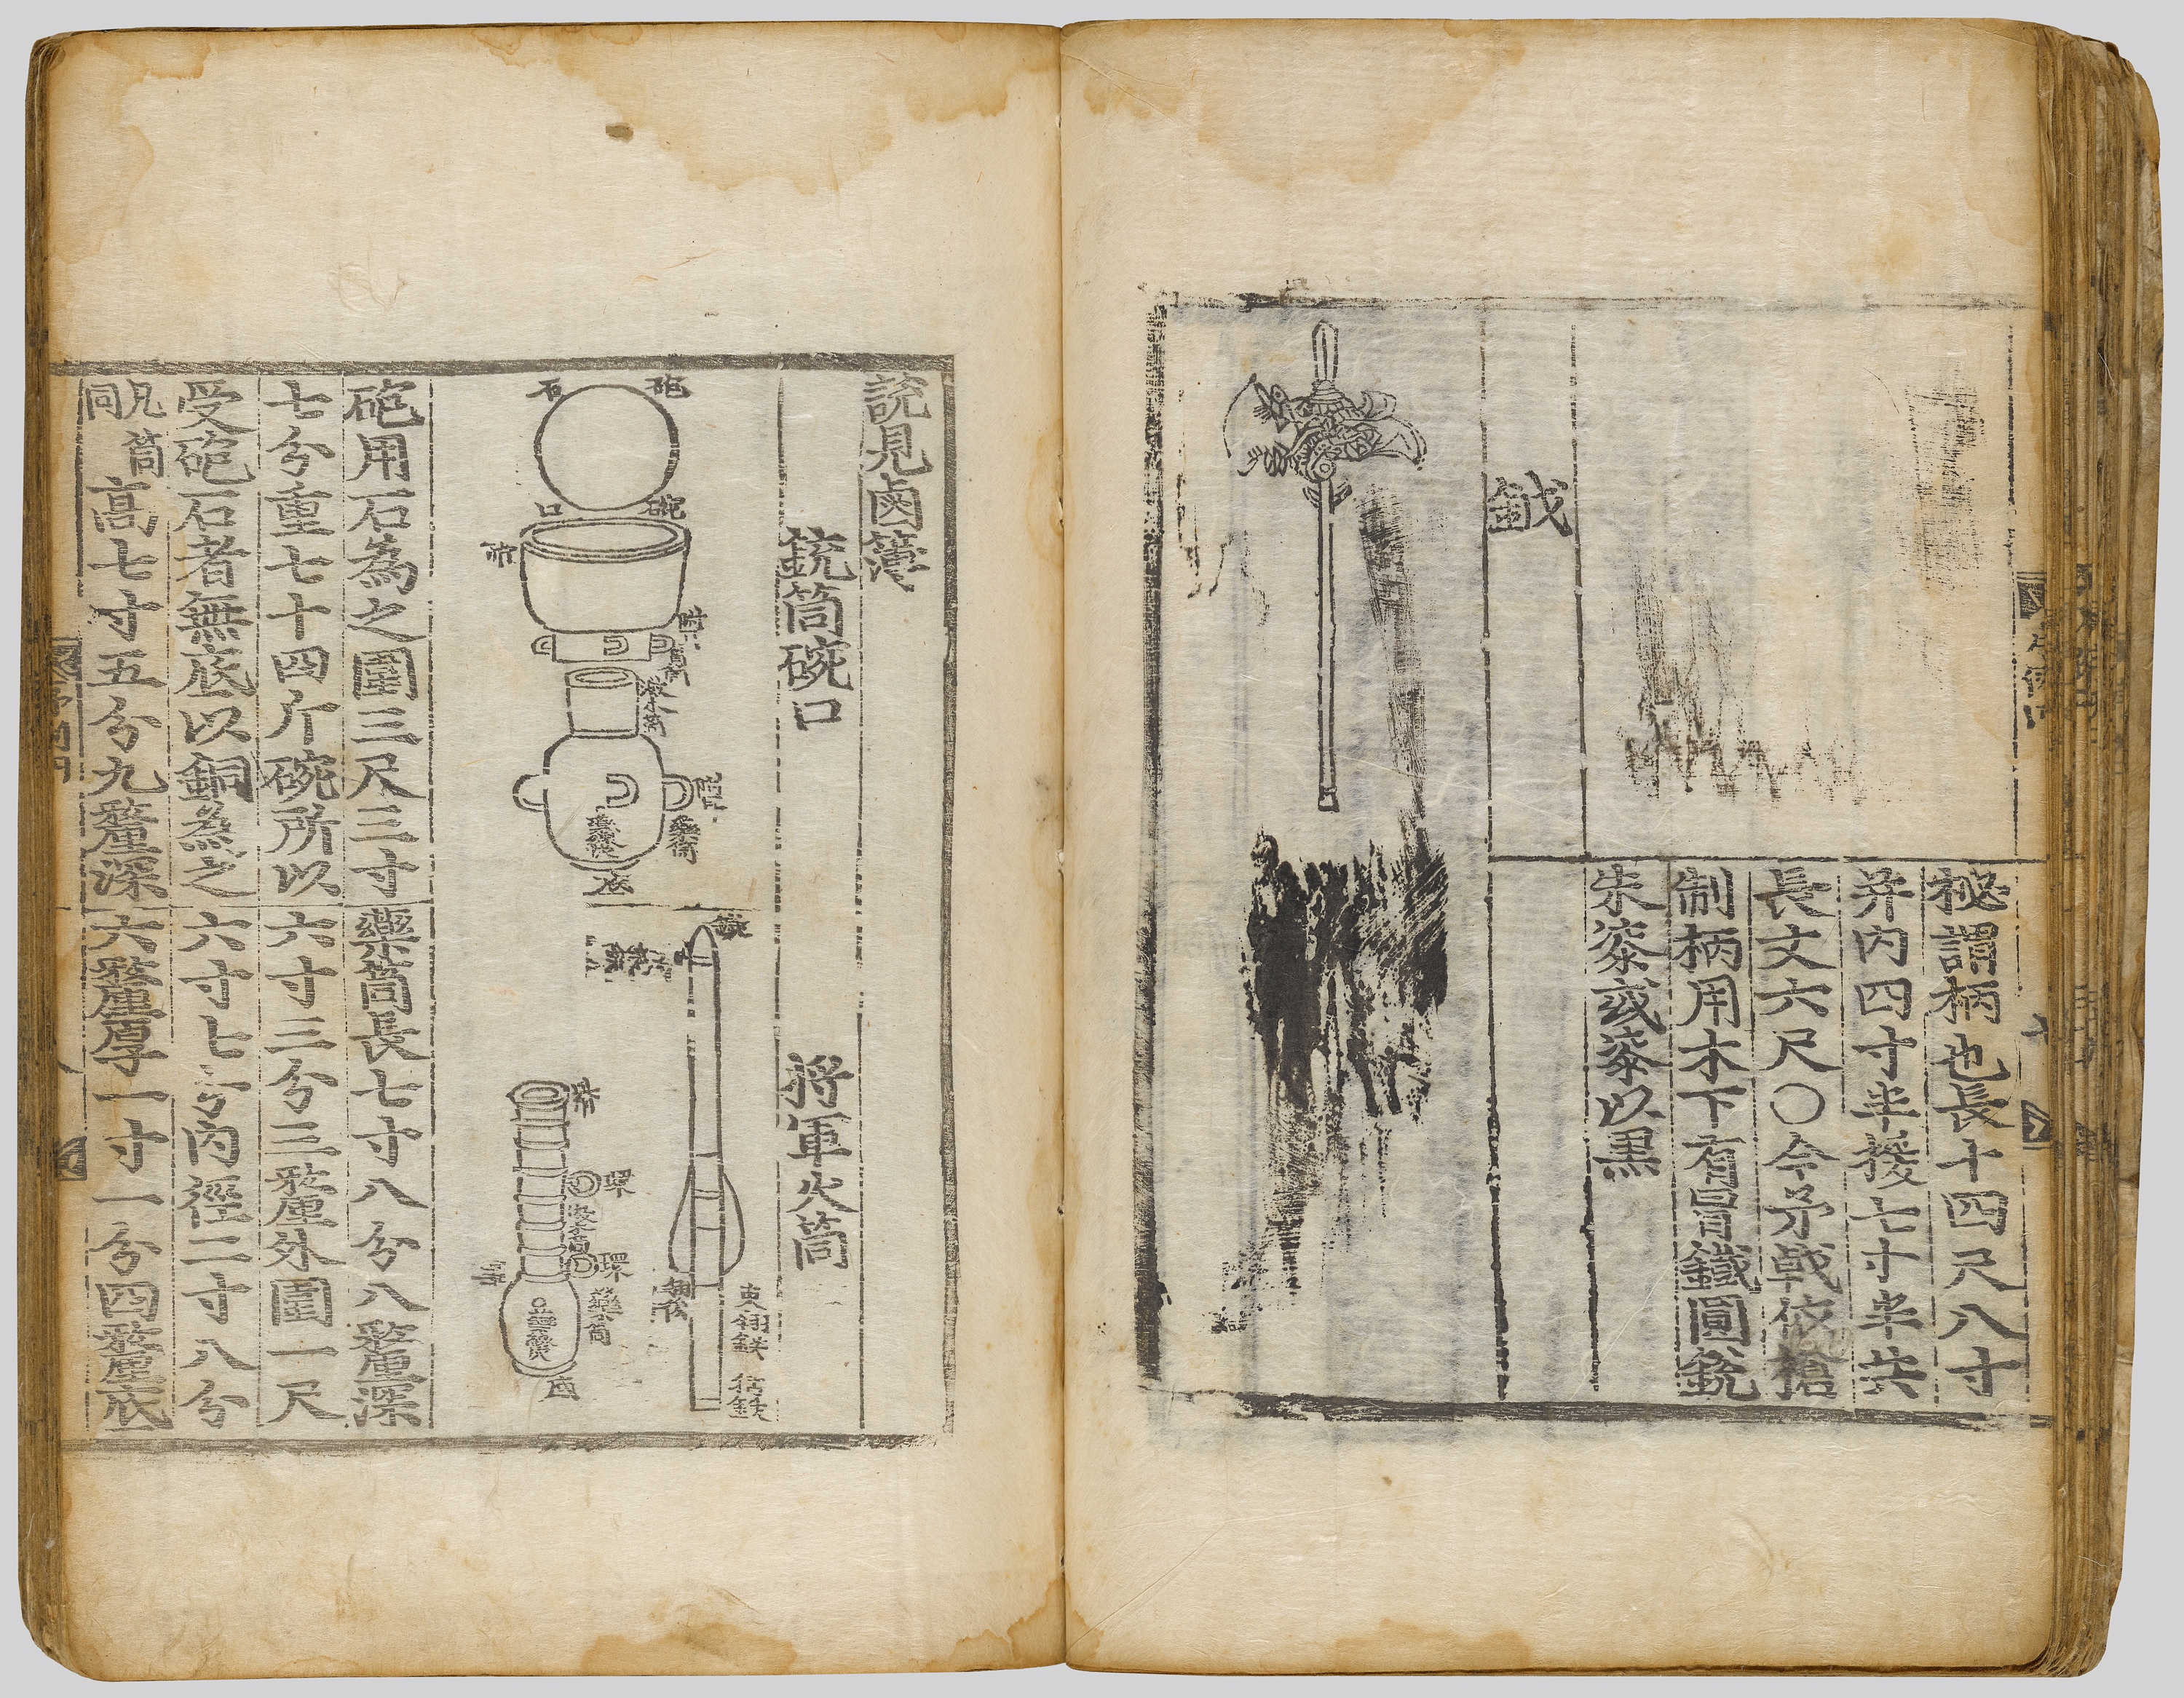 柲謂柄也長十四尺八寸
并內四寸半接七寸半共
長丈六尺○今矛戟依槍
制柄用木下有冒鐵圓銳
朱漆或漆以黑
鉞
說見鹵簿
銃筒碗口
將軍火筒
砲石
碗口
激木筒
藥筒
底
鏃
環
環
藥筒
底
砲用石為之圍三尺三寸
七分重七十四斤碗所以
受砲石者無底以銅為之
凡筒同
高七寸五分九氂深
藥筒長七寸八分八氂深
六寸三分三氂外圍一尺
六寸七分內徑二寸八分
六氂厚一寸一分四氂底